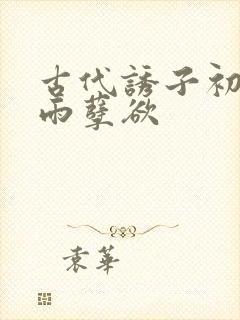 古代誘子初
雨孽欲
袁華